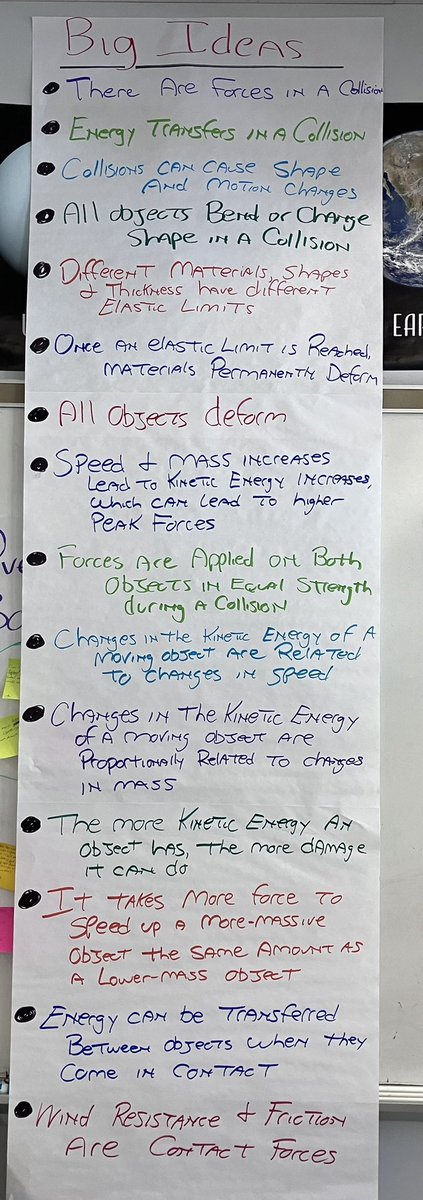 Big Ideas
• There Are Forces in a Collision
• Energy Transfers in a Collision
• Collisions can cause Shape
and motion changes
• All objects Bend or Change
Shape in a Collision
• Different Materials, Shapes
& Thickness have different
Elastic Limits
• Once an elastic Limit is Reached,
materials Permanently Deform
• All Objects deform
• Speed & mass increases
lead to Kinetic Energy increases,
which can lead to higher
Peak Forces
• Forces Are Applied on Both
Objects in Equal Strength
during a Collision
• Changes in the Kinetic Energy of A
moving object are Related
to changes in speed
• Changes in the Kinetic Energy
of A moving object are
Proportionally Related to changes
in mass
• The more Kinetic Energy An
object has, the more damage
it can do
• It takes More force to
Speed up a more-massive
Object the same Amount as
a Lower-mass object
• Energy can be Transferred
Between objects when they
Come in Contact
• Wind Resistance & Friction
Are Contact Forces
EAR